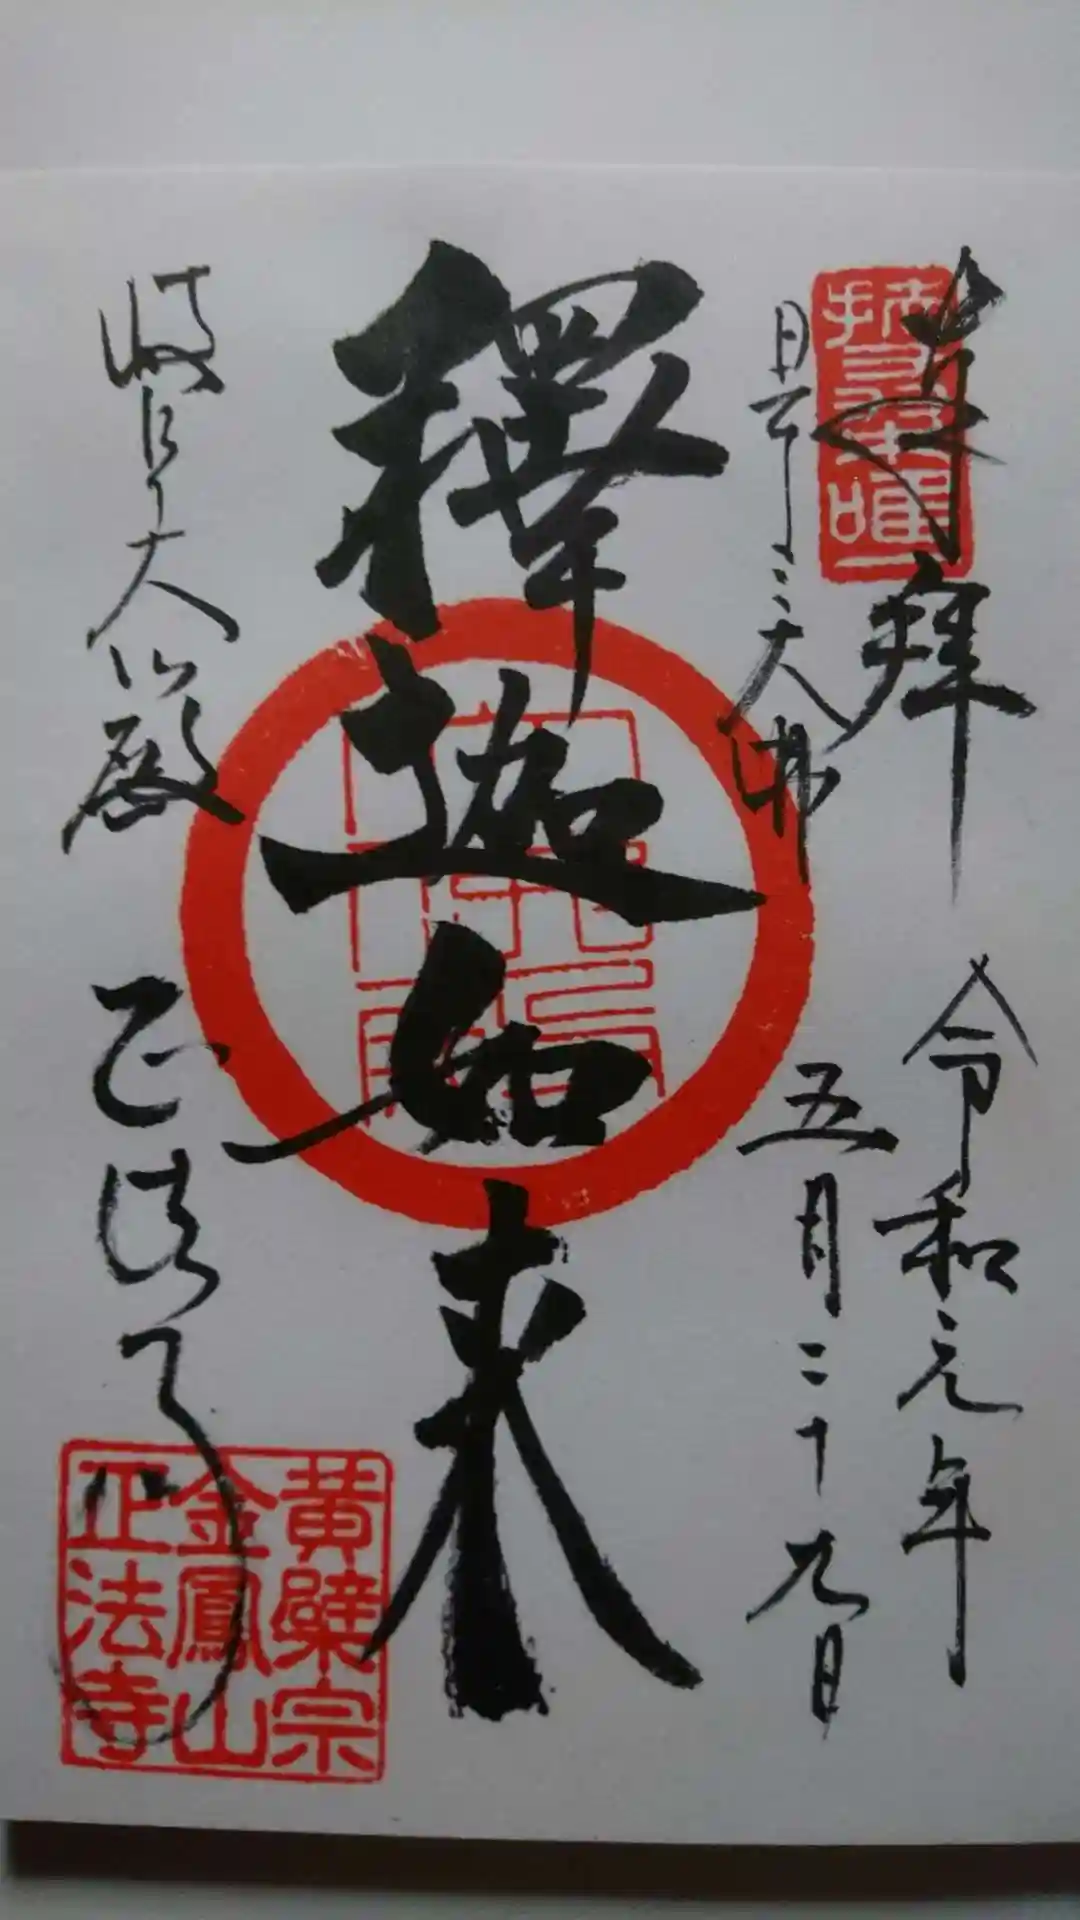 奉拝
令和元年
日本三大佛
五月二十九日
釋迦如来
岐阜大仏殿
正法寺
黄檗宗
金鳳山
正法寺